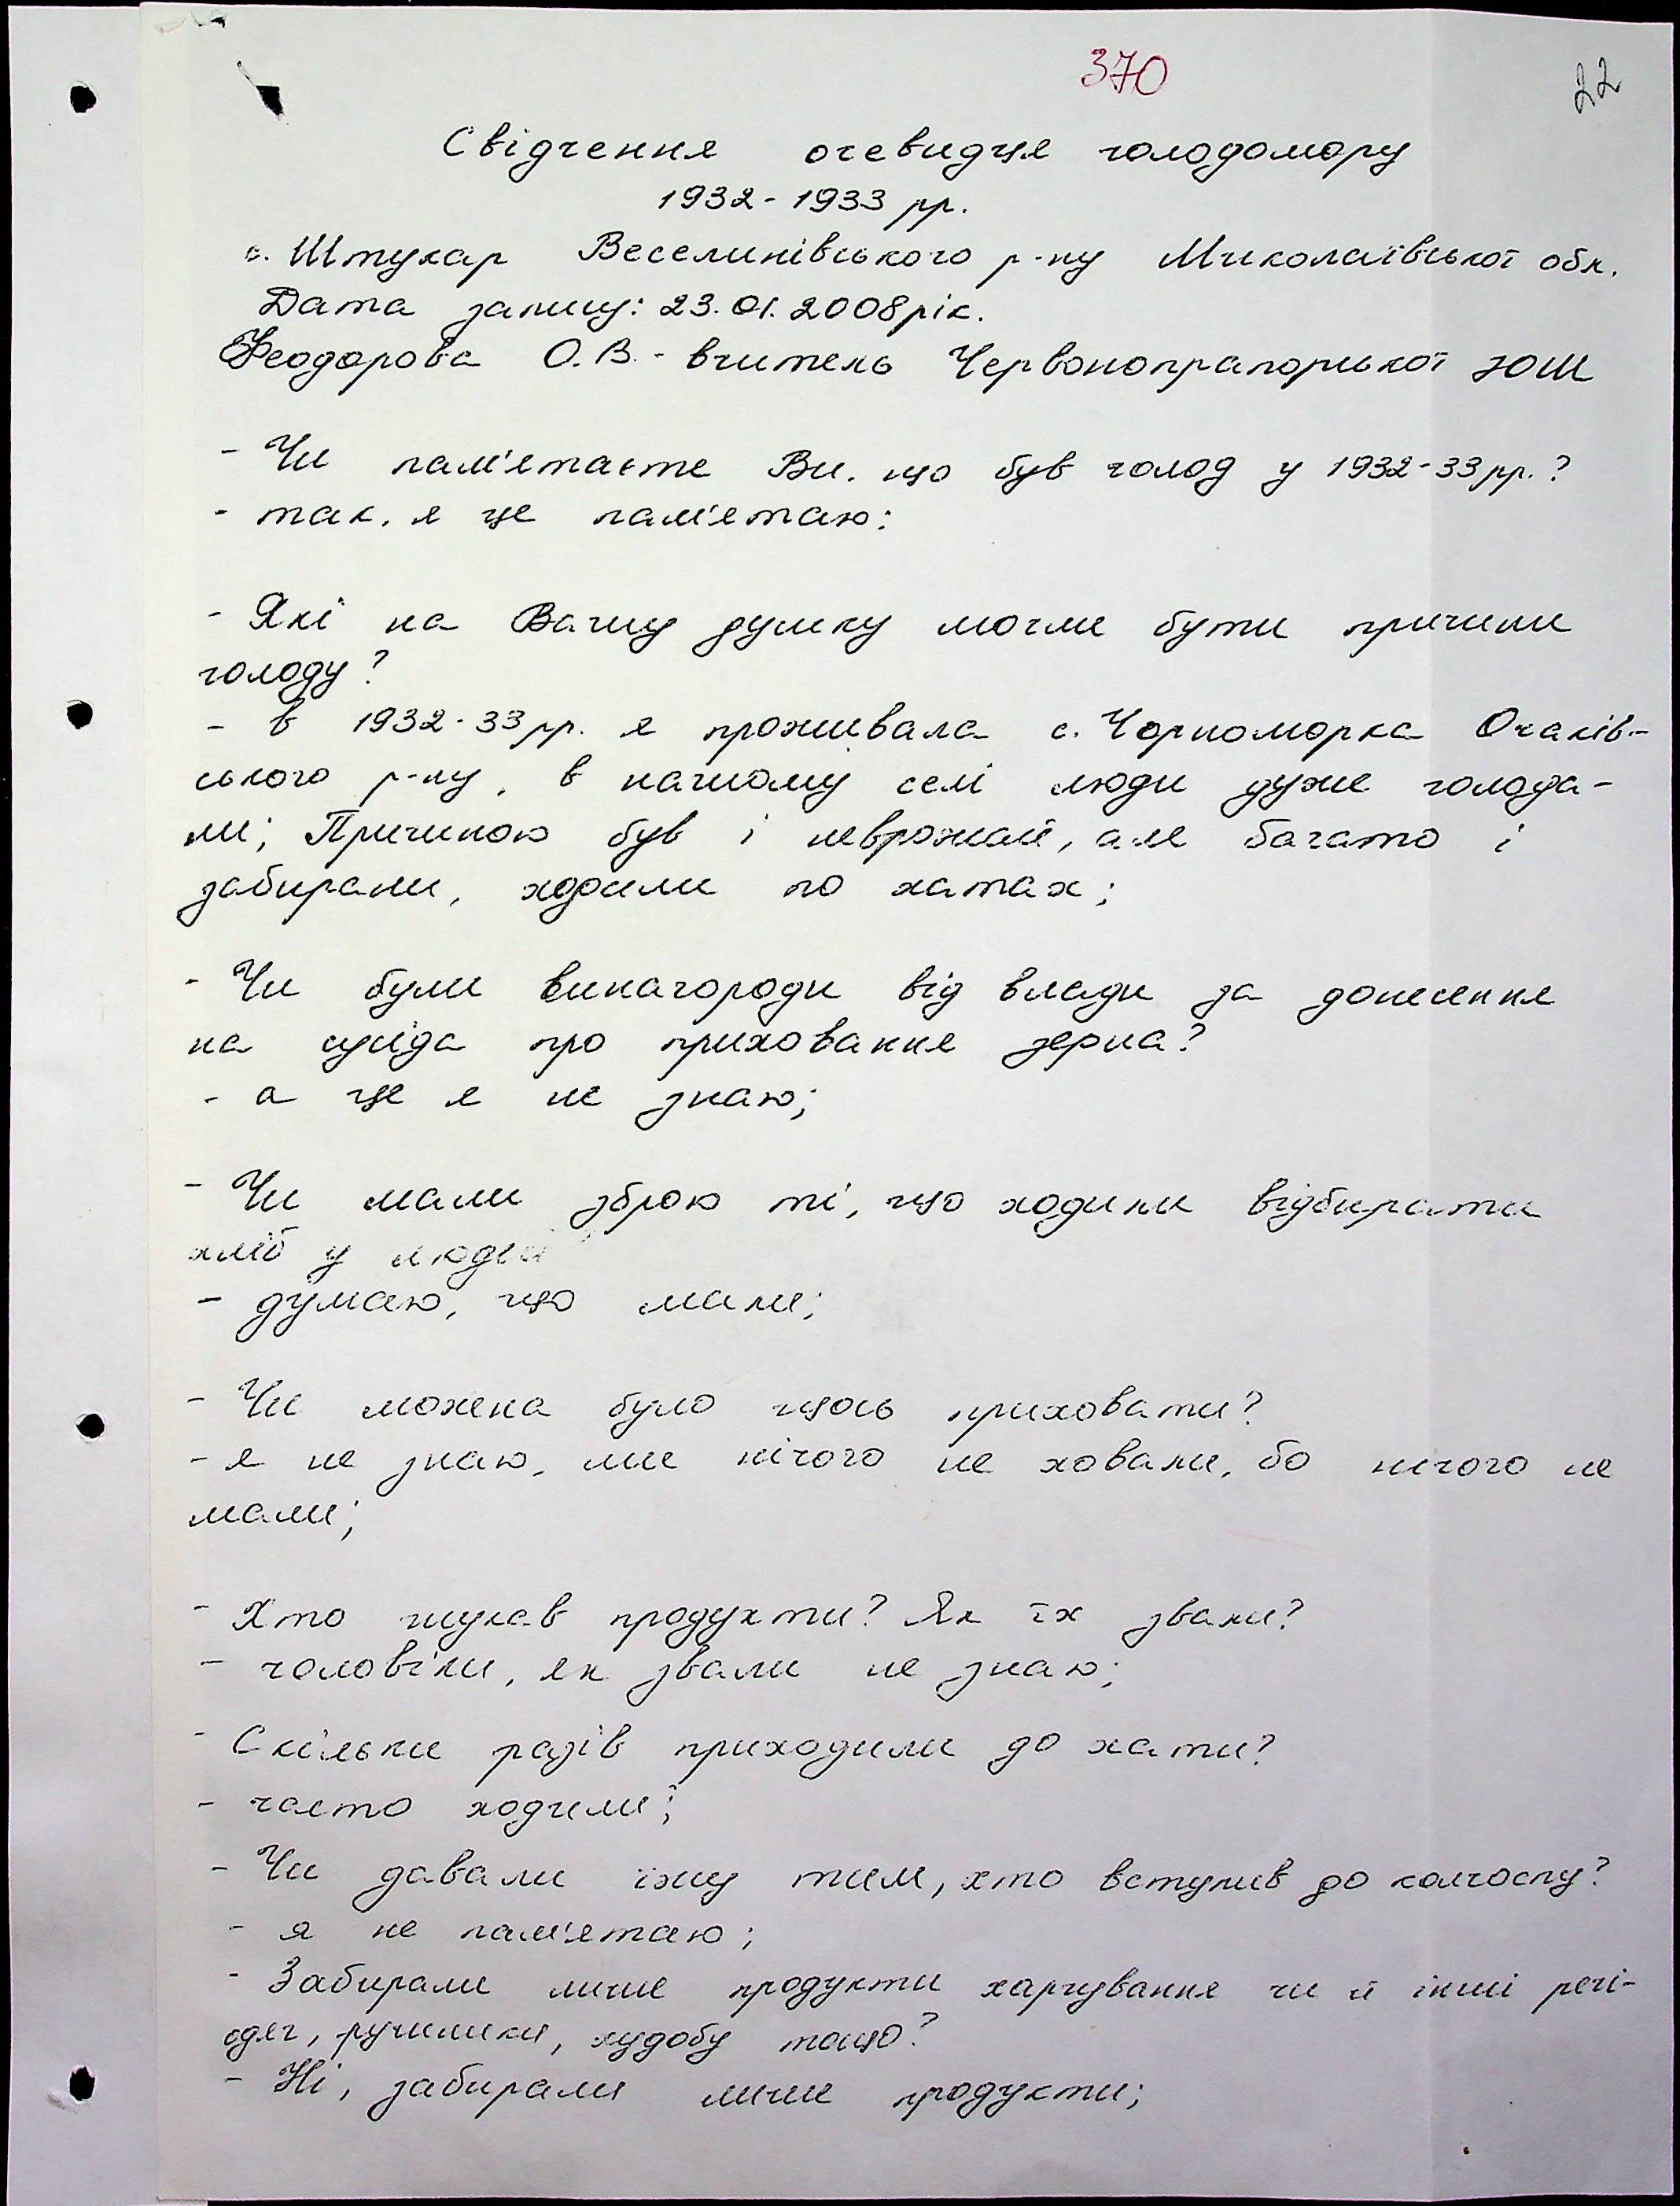 370
22
Свідчення очевидця голодомору
1932-1933 рр.
с. Штукар Веселинівського р-ну Миколаївської обл.
Дата запису: 23.01.2008рік.
Феодорова О.В. - вчитель Червонопрапорської ЗОШ
- Чи пам'ятаєте Ви, що був голод у 1932-33рр.?
- так, я це пам'ятаю:
- Які на Вашу думку могли бути причини
голоду?
- в 1932-33рр. я проживала с. Чорноморка Очаків-
ського р-ну, в нашому селі люди дуже голода-
ли; Причиною був і неврожай, але багато і
забирали, ходили по хатах;
- Чи були винагороди від влади за донесення
на сусіда про приховання зерна?
- а це я не знаю;
- Чи мали зброю ті, що ходили відбирати
хліб у людей
- думаю, що мали;
- Чи можна було щось приховати?
- я не знаю, ми нічого не ховали, бо нічого не
мали;
- Хто шукав продукти? Як їх звали?
- чоловіки, як звали не знаю;
- Скільки разів приходили до хати?
- часто ходили;
- Чи давали їжу тим, хто вступив до колгоспу?
- я не пам'ятаю;
- Забирали лише продукти харчування чи й інші речі-
одяг, рушники, худобу тощо?
- Ні, забирали лише продукти;